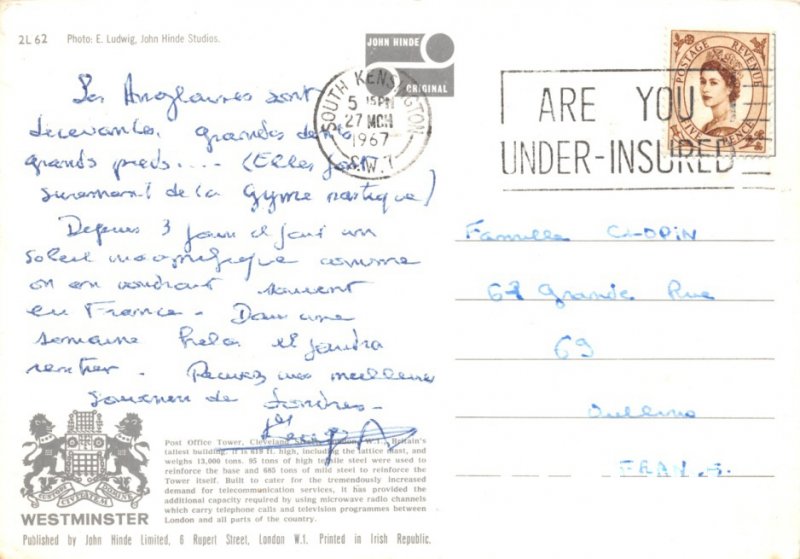 2L62 Photo: E. Ludwig, John Hinde Studios.
JOHN HINDE
ORIGINAL
SOUTH KENSINGTON
5 15 PM
27 MCH
1967
S.W.7
ARE YOU
UNDER-INSURED
POSTAGE REVENUE
FIVE PENCE
Les Anglaises sont
decevantes, grandes dents
grands pieds.... (Elles font
surement de la Gymnastique)
Depuis 3 jours il fait un
soleil magnifique comme
on en voudrait souvent
en France. Dans une
semaine helas il faudra
rentrer. Recevez nos meilleurs
souvenirs de Londres.
Famille
67 Grande Rue
69
Oullins
FRANCE
WESTMINSTER
Post Office Tower, Cleveland Street, London, W.1., Britain's
tallest building. It is 619 ft. high, including the lattice mast, and
weighs 13,000 tons. 95 tons of high tensile steel were used to
reinforce the base and 685 tons of mild steel to reinforce the
Tower itself. Built to cater for the tremendously increased
demand for telecommunication services, it has provided the
additional capacity required by using microwave radio channels
which carry telephone calls and television programmes between
London and all parts of the country.
Published by John Hinde Limited, 6 Rupert Street, London W.1. Printed in Irish Republic.